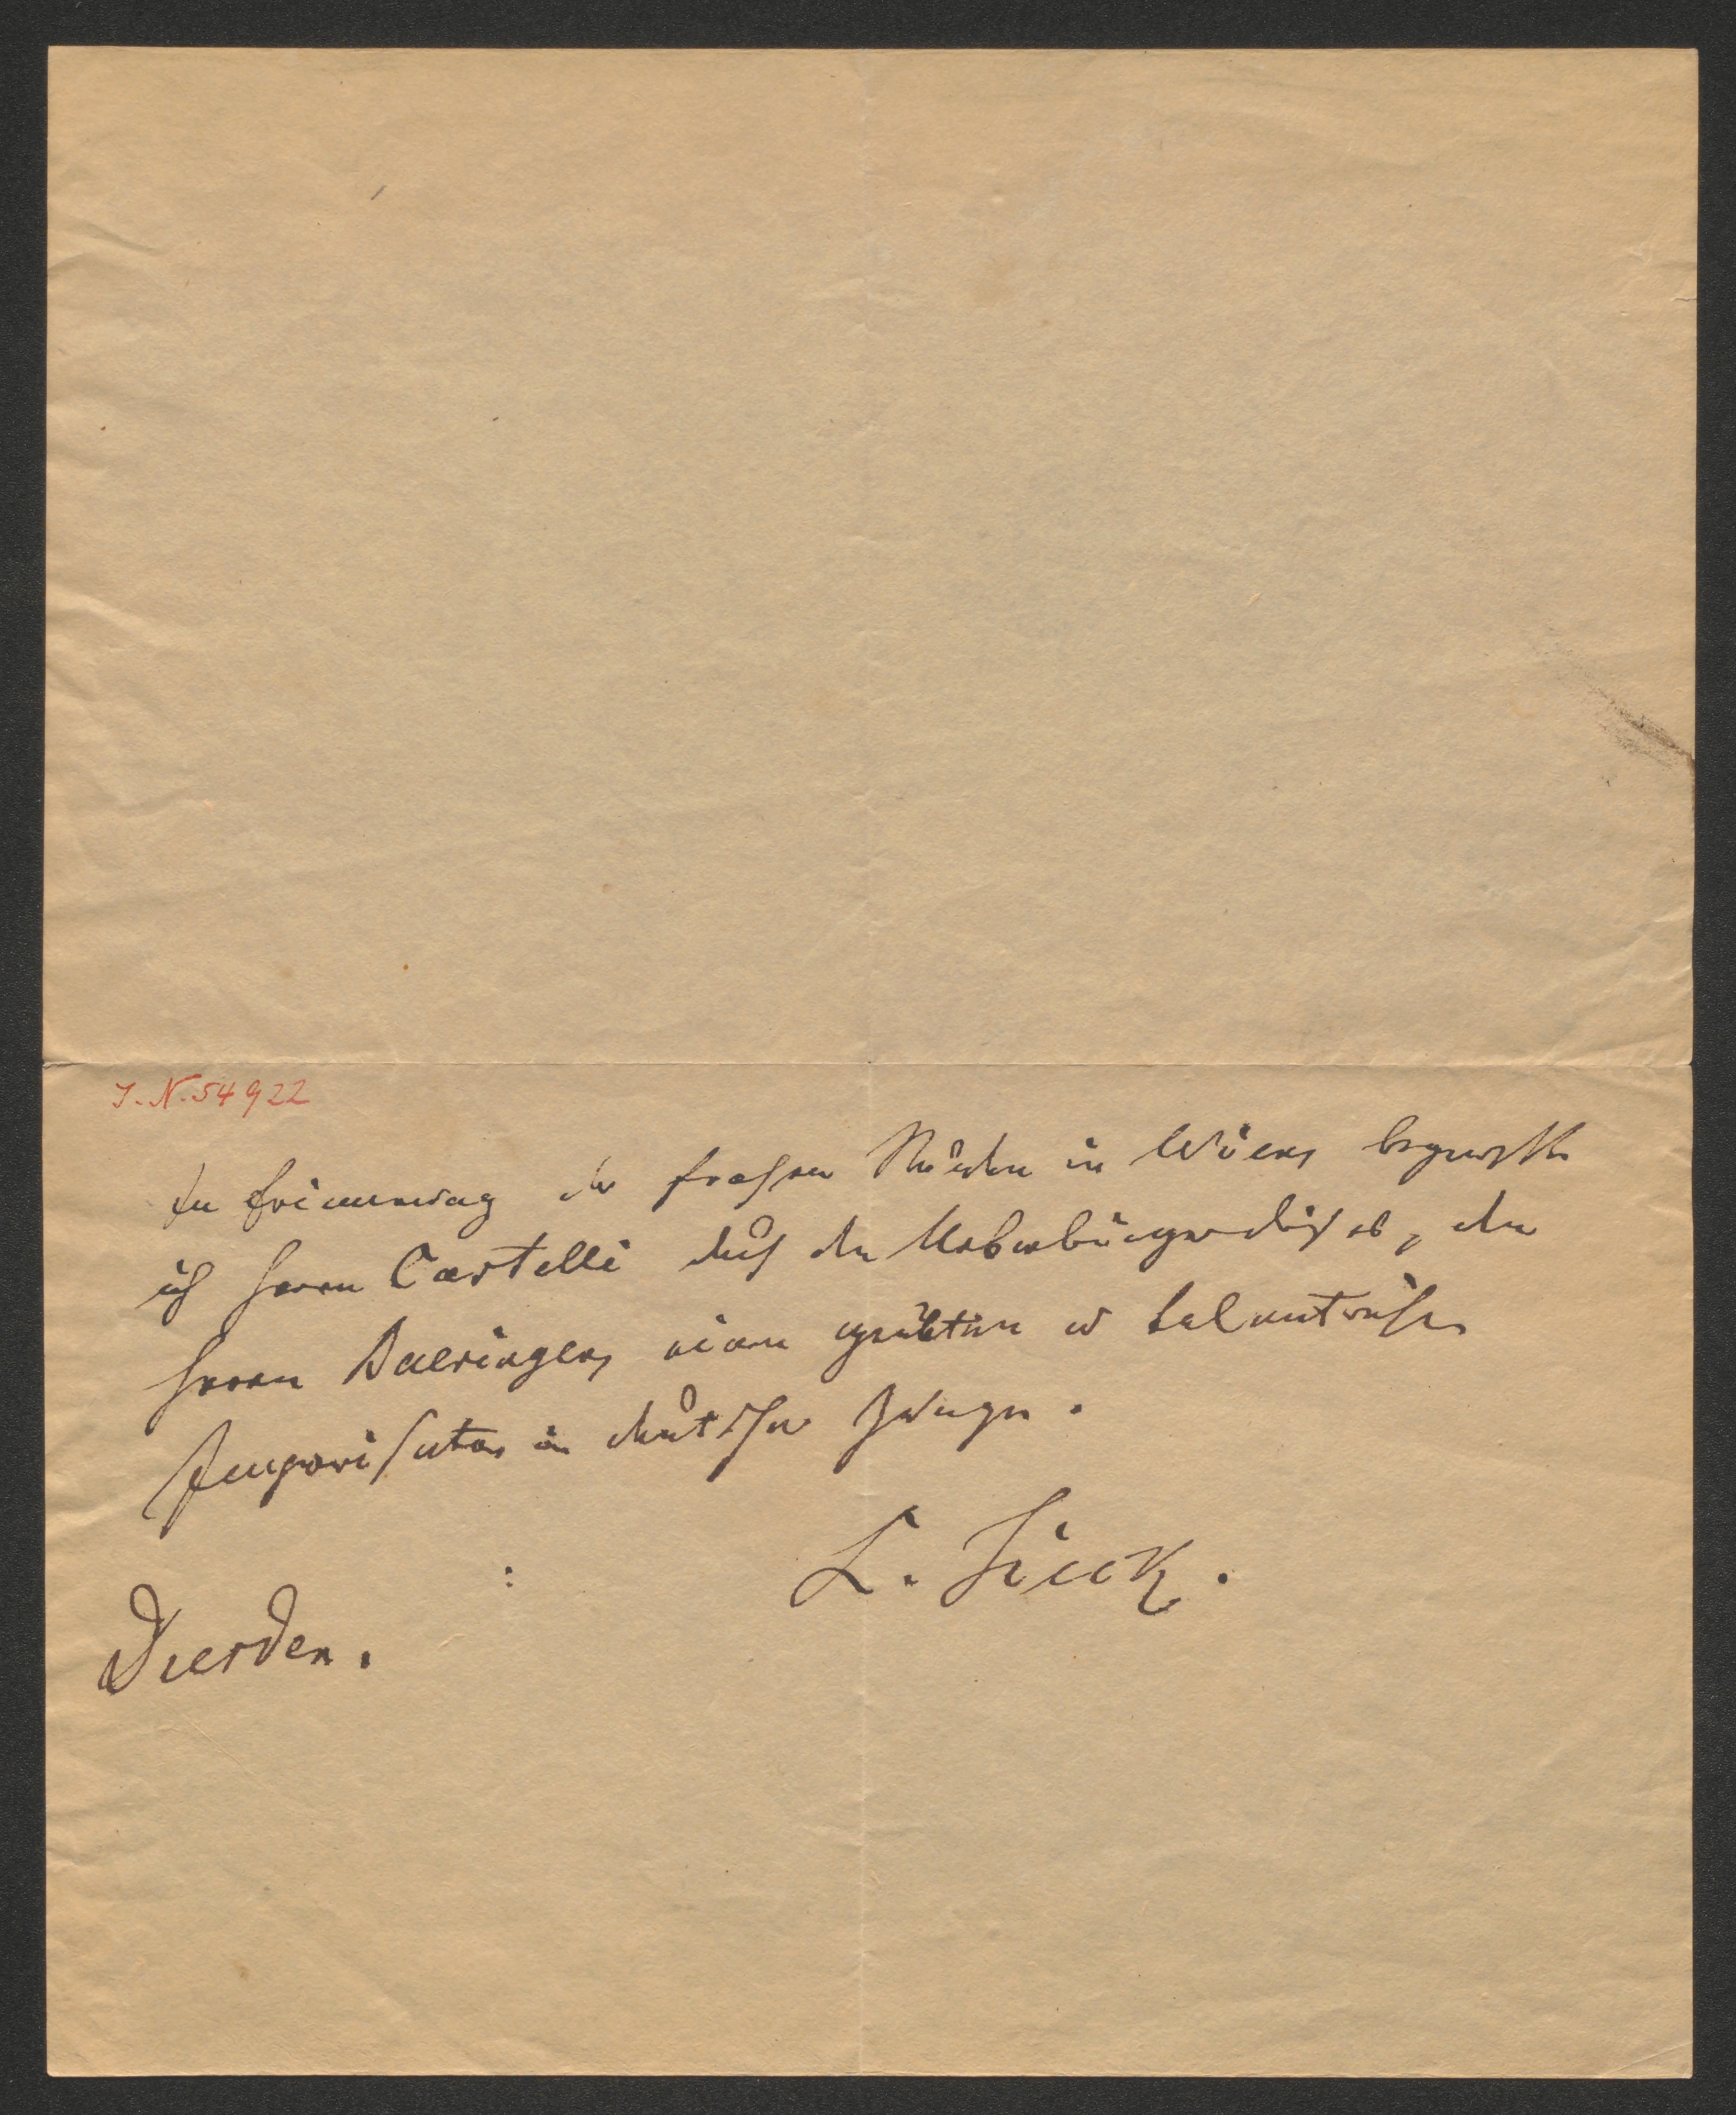 J. N. 54922
In Erinnerung der frohen Stunden in Wien, begrüsse
ich Herrn Castelli durch den Ueberbringer dieses, den
Herrn Baeringer, einen geübten u talentreichen
Improvisator in deutscher Zunge.
L. Tieck.
Dresden.